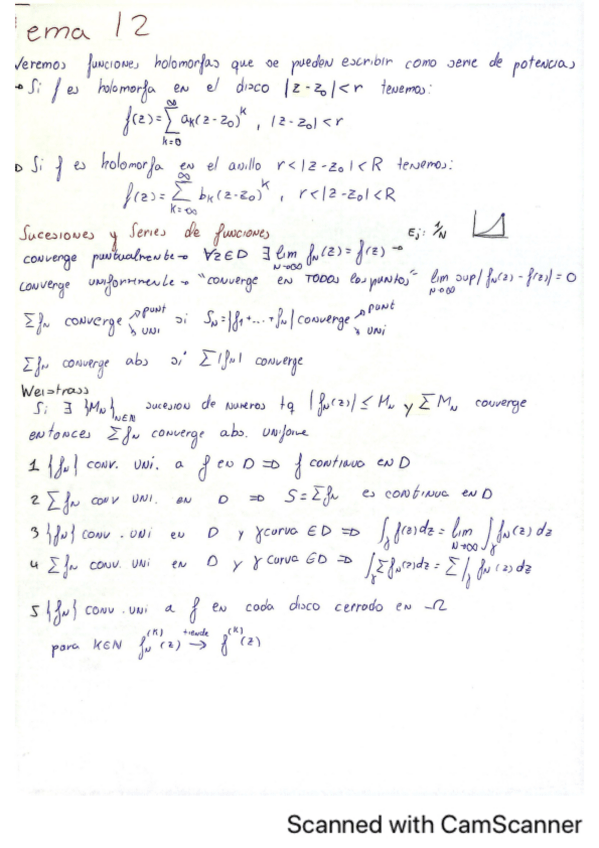 ema 12
Veremos funciones holomorfas que se pueden escribir como serie de potencias
→ Si f es holomorfa en el disco |z - z₀| < r tenemos:
f(z) = ∑_{k=0}^{∞} a_k (z - z₀)^k , |z - z₀| < r
Si f es holomorfa en el anillo r < |z - z₀| < R tenemos:
f(z) = ∑_{k=∞}^{∞} b_k (z - z₀)^k , r < |z - z₀| < R
Sucesiones y Series de funciones Ej: 1/N
converge puntualmente → ∀z∈D ∃ lim_{N→∞} f_N(z) = f(z) →
converge uniformemente → "converge en TODOS los puntos" lim_{N→∞} sup |f_N(z) - f(z)| = 0
∑f_N converge ↗ punt ↘ uni si S_N = |f_1 + ... + f_N| converge ↗ punt ↘ uni
∑f_N converge abs si ∑|f_N| converge
Weistrass
Si ∃ {M_N}_{N∈ℕ} sucesion de numeros tq |f_N(z)| ≤ M_N y ∑M_N converge
entonces ∑f_N converge abs. uniforme
1 {f_N} conv. uni. a f en D ⇒ f continua en D
2 ∑f_N conv uni. en D ⇒ S = ∑f_N es continua en D
3 {f_N} conv. uni en D y γ curva ∈ D ⇒ ∫_γ f(z)dz = lim_{N→∞} ∫_γ f_N(z) dz
4 ∑f_N conv. uni en D y γ curva ∈ D ⇒ ∫_γ ∑f_N(z)dz = ∑ ∫_γ f_N(z) dz
5 {f_N} conv. uni a f en cada disco cerrado en Ω
para K∈N f_N^{(k)}(z) tiende → f^{(k)}(z)
Scanned with CamScanner